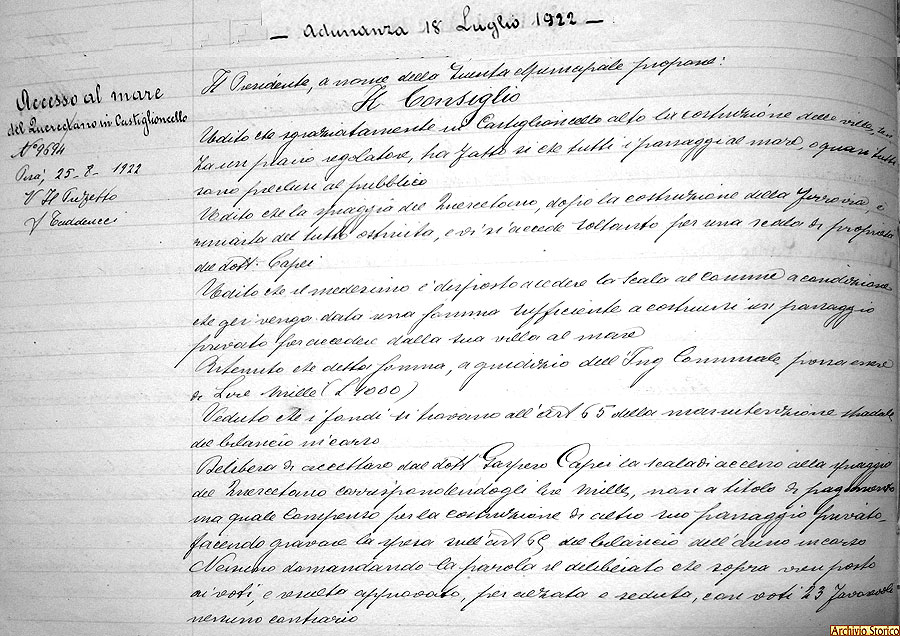 — Adunanza 18 Luglio 1922 —
Accesso al mare
del Quercetano in Castiglioncello
N° 9594
Pisa, 25-8-1922
V° Il Prefetto
f/ Taddeucci
Il Presidente, a nome della Giunta Municipale propone:
Il Consiglio
Udito che sgraziatamente in Castiglioncello alto la costruzione delle ville, sen
za un piano regolatore, ha fatto sì che tutti i passaggi al mare, o quasi tutti
sono preclusi al pubblico
Udito che la spiaggia del Quercetano, dopo la costruzione della ferrovia, è
rimasta del tutto ostruita, e vi si accede soltanto per una scala di proprietà
del dott. Capei
Udito che il medesimo è disposto a cedere la scala al Comune a condizione
che gli venga data una somma sufficiente a costruirsi un passaggio
privato per accedere dalla sua villa al mare
Ritenuto che detta somma, a giudizio dell'Ing Comunale possa essere
di Lire Mille (L 1000)
Veduto che i fondi si trovano all'art 65 della manutenzione stradale
del bilancio in corso
Delibera di accettare dal dott Gaspero Capei la scala di accesso alla spiaggia
del Quercetano corrispondendogli lire mille, non a titolo di pagamento
ma quale compenso per la costruzione di altro suo passaggio privato
facendo gravare la spesa sull'art 65 del bilancio dell'anno in corso
Nessuno domandando la parola il deliberato che sopra vien posto
ai voti, e resulta approvato, per alzata e seduta, con voti 23 favorevoli
nessuno contrario
Archivio Storico